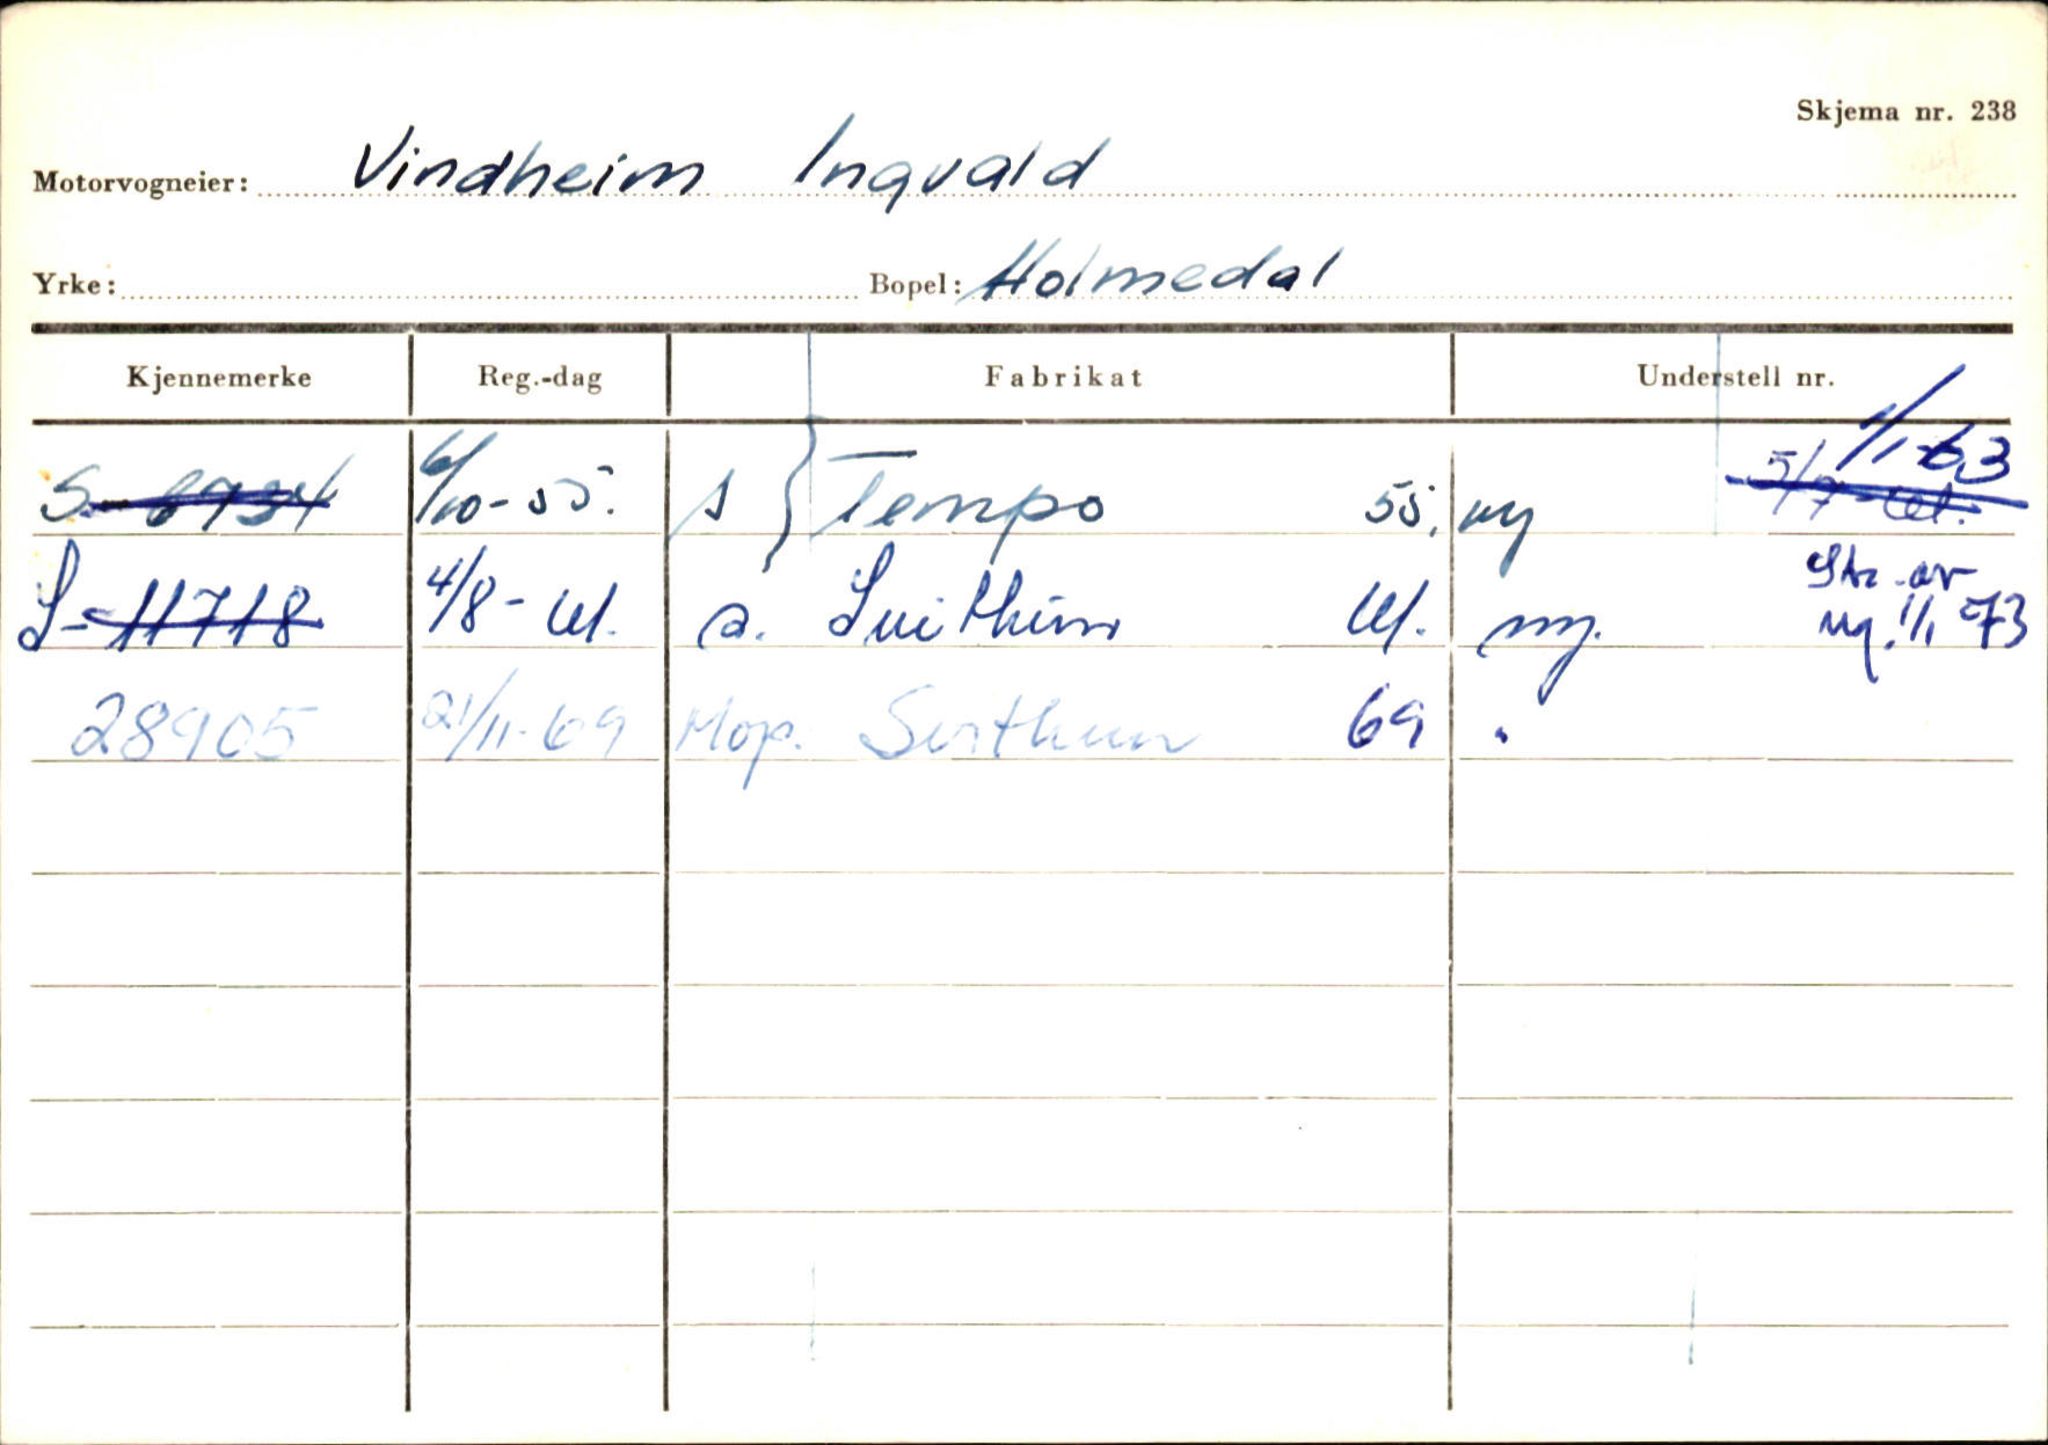 Skjema nr. 238
Motorvogneier: Vindheim Ingvald
Yrke: Bopel: Holmedal
Kjennemerke Reg.-dag Fabrikat Understell nr.
1/1-63
S-6934 6/10-55. s } Tempo 55. ny 5/7-61.
S-11718 4/8-61. a. Svithun 61. ny. Str. av
ny. 1/1 73
28905 21/11-69 Mop. Svithun 69 "